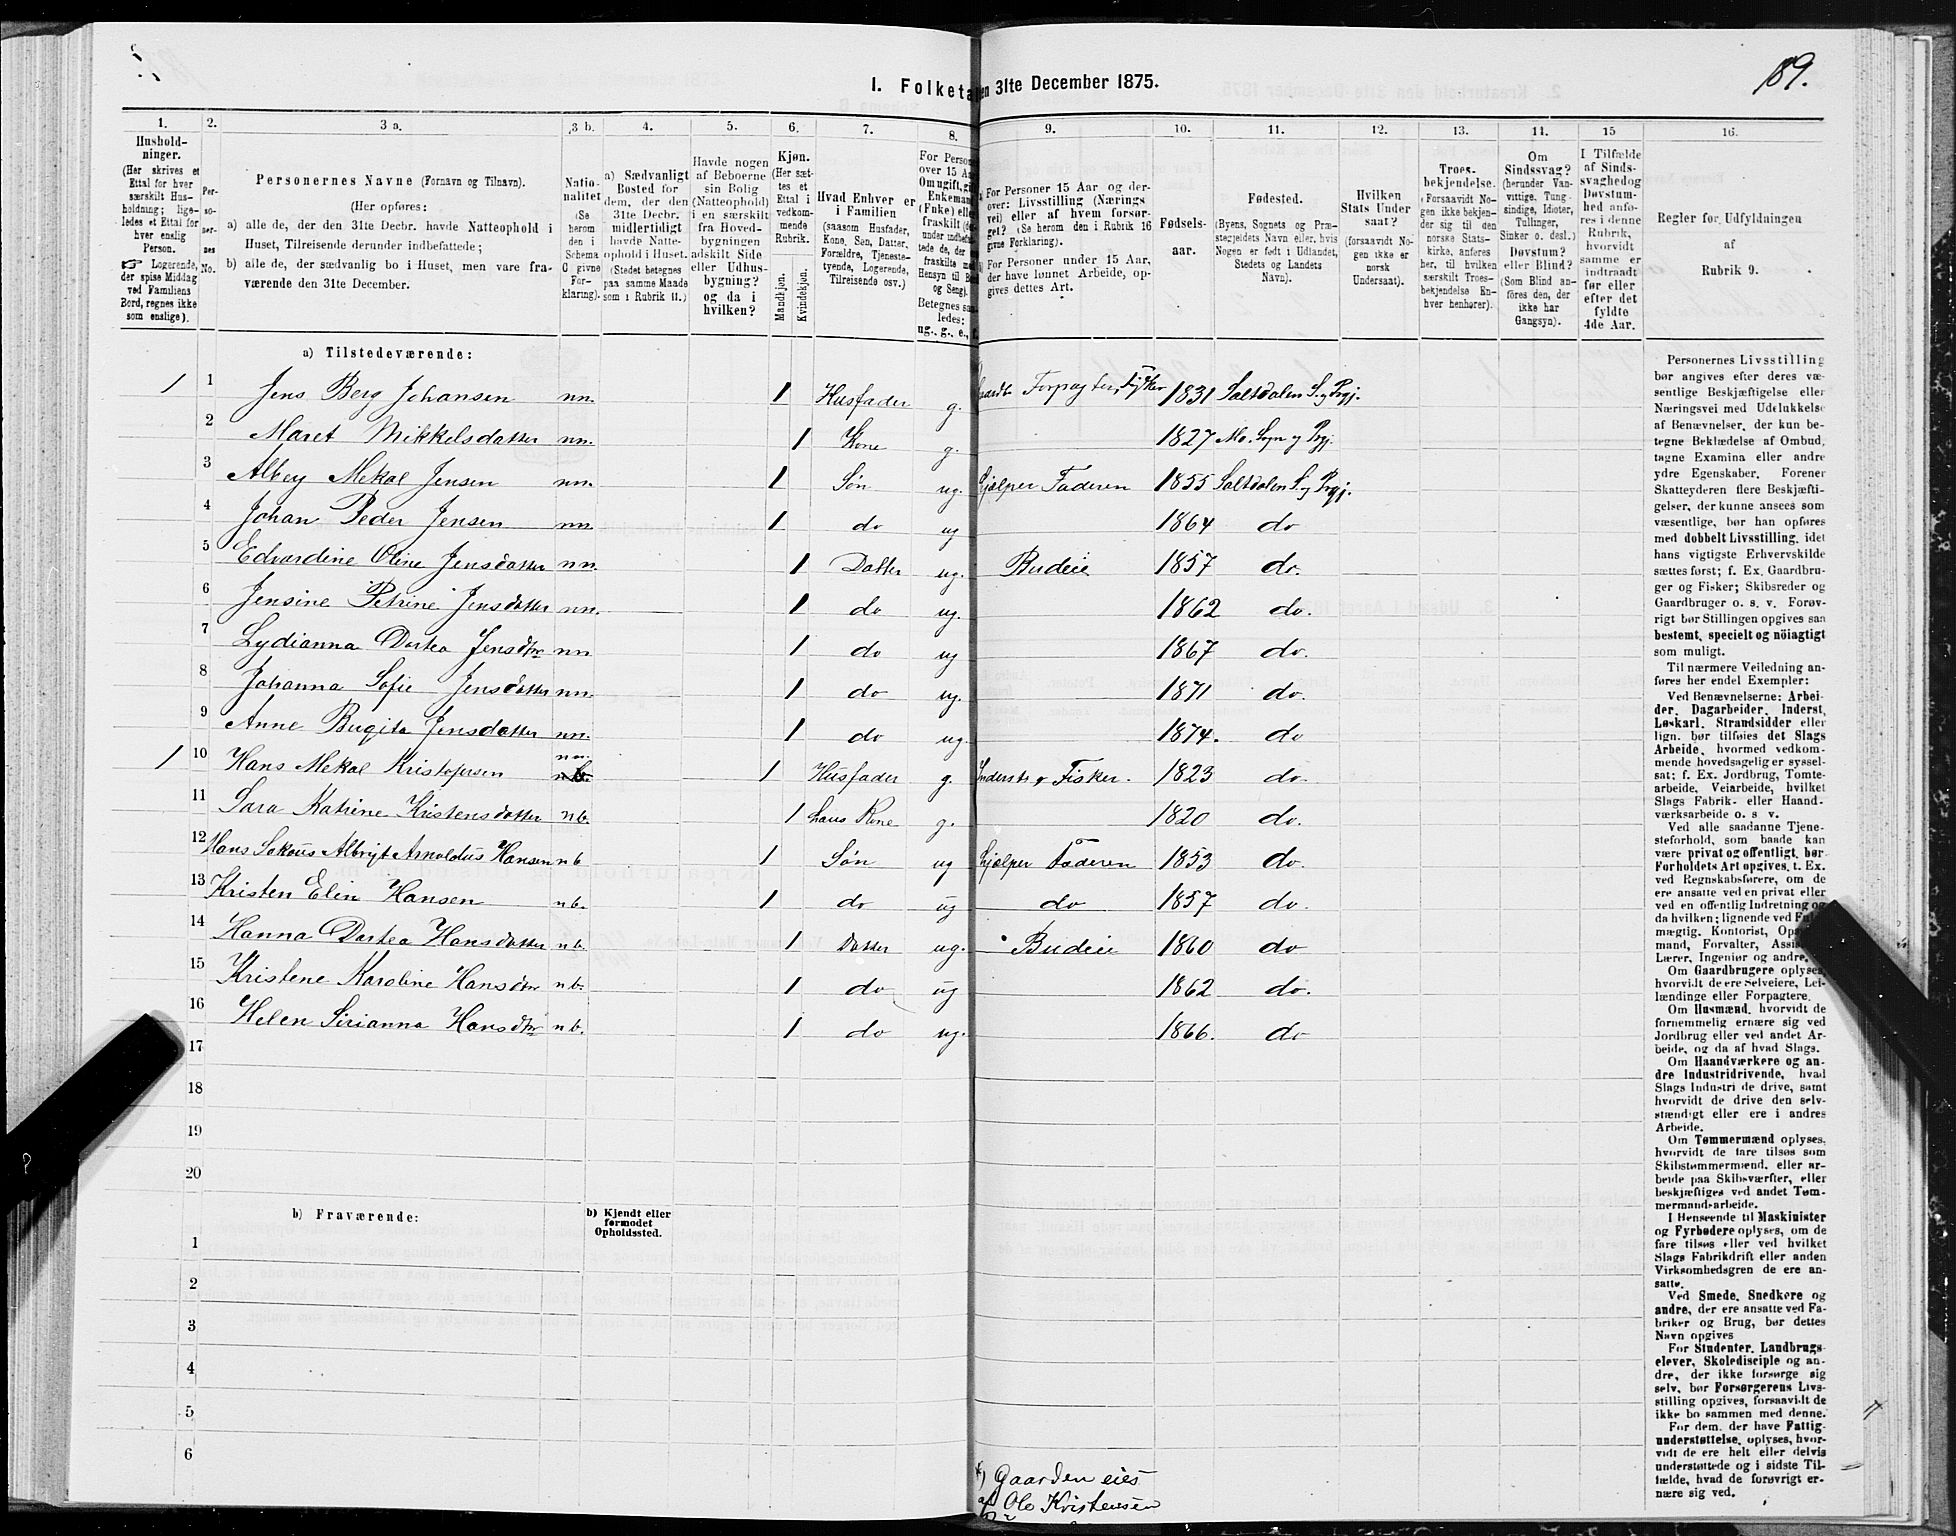 189.
I. Folketa en 31te December 1875.
1. 2. 3 a. 3 b. 4. 5. 6. 7. 8. 9. 10. 11. 12. 13. 14. 15 16.
Hushold-
ninger.
(Her skrives et
Ettal for hver
særskilt Hus-
holdning; lige-
ledes et Ettal for
hver enslig
Person.
☞ Logerende,
der spise Middag
ved Familiens
Bord, regnes ikke
som enslige).
Per-
so-
ner-
nes
No.
Personernes Navne (Fornavn og Tilnavn).
(Her opføres:
a) alle de, der den 31te Decbr. havde Natteophold i
Huset, Tilreisende derunder indbefattede;
b) alle de, der sædvanlig bo i Huset, men vare fra-
værende den 31te December.
Natio-
nalitet
(Se
herom
den i
Schema
C givne
For-
klaring).
a) Sædvanligt
Bosted for
dem, der den
31te Decbr.
midlertidigt
havde Natte-
ophold i Huset.
(Stedet betegnes
paa samme Maade
som i Rubrik 11.)
Havde nogen
af Beboerne
sin Bolig
(Natteophold)
i en særskilt
fra Hoved-
bygningen
adskilt Side
eller Udhus-
bygning?
og da i
hvilken?
Kjøn.
(Her sæt-
tes et
Ettal i
vedkom-
mende
Rubrik.
Mandkjøn.
Kvindekjøn.
Hvad Enhver er
i Familien
(saasom Husfader,
Kone, Søn, Datter,
Forældre, Tjeneste-
tyende, Logerende,
Tilreisende osv.)
For Person
over 15 Aa
Om ugift, gi
Enkeman
(Enke) elle
fraskilt (de
under indbefat-
tede de, der e
fraskilte m
Hensyn til B
og Seng).
Betegnes saa
ledes:
ug., g., e., f.
For Personer 15 Aar og der-
over: Livsstilling (Nærings
vei) eller af hvem forsør-
get? (Se herom den i Rubrik 16
givne Forklaring).
For Personer under 15 Aar,
der have lønnet Arbeide, op-
gives dettes Art.
Fødsels-
aar.
Fødested.
(Byens, Sognets og Præ-
stegjeldets Navn eller, hvis
Nogen er født i Udlandet,
Stedets og Landets
Navn).
Hvilken
Stats Under
saat?
(forsaavidt No-
gen ikke er
norsk
Undersaat).
Troes-
bekjendelse.
(Forsaavidt No-
gen ikke bekjen-
der sig til den
norske Stats-
kirke, anføres
her, til hvilken
særskilt Troes-
bekjendelse En-
hver henhører).
Om
Sindssvag?
(herunder Van-
vittige, Tung-
sindige, Idioter,
Tullinger,
Sinker o. desl.)
Døvstum?
eller Blind?
(Som Blind an-
føres den, der
ikke har
Gangsyn).
I Tilfælde
af Sinds-
svaghed og
Døvstum-
hed anfø-
res i denne
Rubrik,
hvorvidt
samme er
indtraadt
før eller
efter det
fyldte
4de Aar.
Regler for Udfyldningen
af
Rubrik 9.
a) Tilstedeværende:
1 1 Jens Berg Johansen nn. 1 Husfader g. Forpagter, Fisker 1831 Saltdalen S. og Prgj.
2 Maret Mikkelsdatter nn. 1 Kone g. 1827 Mo. Sogn og Prgj.
3 Albey Mekal Jensen nn. 1 Søn ug. hjælper Faderen 1855 Saltdalen S. og Prgj.
4 Johan Peder Jensen nn. 1 do ug 1864 do
5 Edvardine Oline Jensdatter nn. 1 Datter ug. Budeie 1857 do.
6 Jensine Petrine Jensdatter nn. 1 do ug. 1862 do.
7 Lydianna Dortea Jensdtr nn. 1 do ug 1867 do.
8 Johanna Sofie Jensdatter nn. 1 do ug. 1871 do.
9 Anne Birgita Jensdatter nn. 1 do ug. 1874. do
1 10 Hans Mekal Kristofersen nn. 1 Husfader g. Inderst og Fisker. 1823 do.
11 Sara Katrine Kristensdatter nb. 1 hans Kone g. 1820 do.
12 Hans Albrigt Arnoldus Hansen nb 1 Søn ug hjælper Faderen 1853 do.
13 Kristen Elin Hansen nb. 1 do ug do 1857 do.
14 Hanna Dortea Hansdatter nb. 1 Datter ug. Budeie 1860 do
15 Kristene Karoline Hansdtr nb. 1 do ug 1862 do.
16 Helen Sirianna Hansdtr nb. 1 do ug. 1866. do
17
18
19
20
b) Fraværende:
b) Kjendt eller
formodet
Opholdssted.
1
2
3
4
5
6
*) Gaarden eies
af Ole Kristensen
Personernes Livsstilling
bør angives efter deres væ-
sentlige Beskjæftigelse eller
Næringsvei med Udelukkelse
af Benævnelser, der kun be-
tegne Beklædelse af Ombud,
tagne Examina eller andre
ydre Egenskaber. Forener
Skatteyderen flere Beskjæfti-
gelser, der kunne ansees som
væsentlige, bør han opføres
med dobbelt Livsstilling, idet
hans vigtigste Erhvervskilde
sættes først; f. Ex. Gaardbru-
ger og Fisker; Skibsreder og
Gaardbruger o. s. v. Forøv-
rigt bør Stillingen opgives saa
bestemt, specielt og nöiagtigt
som muligt.
Til nærmere Veiledning an-
føres her endel Exempler:
Ved Benævnelserne: Arbei-
der, Dagarbeider, Inderst,
Løskarl, Strandsidder eller
lign. bør tilføies det Slags
Arbeide, hvormed vedkom-
mende hovedsagelig er syssel-
sat; f. Ex. Jordbrug, Tomte-
arbeide, Veiarbeide, hvilket
Slags Fabrik- eller Haand-
værksarbeide o. s v.
Ved alle saadanne Tjene-
steforhold, som baade kan
være privat og offentligt, bør
Forholdets Art opgives, t. Ex.
ved Regnskabsførere, om de
ere ansatte ved en privat eller
ved en offentlig Indretning og
da hvilken; lignende ved
mægtig, Kontorist,
mand, Forvalter,
Lærer, Ingeniør og andre.
Om Gaardbrugere oplyses,
hvorvidt de ere Selveiere, Lei-
lændinge eller Forpagtere.
Om Husmænd, hvorvidt de
fornemmelig ernære sig ved
Jordbrug eller ved andet Ar-
beide, og da af hvad Slags.
Om Haandværkere og an-
dre Industridrivende, hvad
Slags Industri de drive, samt
hvorvidt de drive den selv-
stændigt eller ere i andres
Arbeide.
Om Tømmermænd oplyses,
hvorvidt de fare tilsøs som
Skibstømmermænd, eller ar-
beide paa Skibsværfter, eller
beskjæftiges ved andet Tøm-
mermandsarbeide.
I Henseende til Maskinister
og Fyrbødere oplyses, om de
fare tilsøs eller ved hvilket
Slags Fabrikdrift eller anden
Virksomhedsgren de ere an-
satte.
Ved Smede, Snedkere og
andre, der ere ansatte ved Fa-
briker og Brug, bør dettes
Navn opgives
For Studenter, Landbrugs-
elever, Skoledisciple og an-
dre, der ikke forsørge sig
selv, bør Forsørgerens Livs-
stilling opgives, forsaavidt de
ikke bo sammen med denne.
For dem, der have Fattig-
understøttelse, oplyses, hvor-
vidt de ere helt eller delvis
understøttede og i sidste Til-
fælde, hvad de forøvrigt er-
nære sig ved.